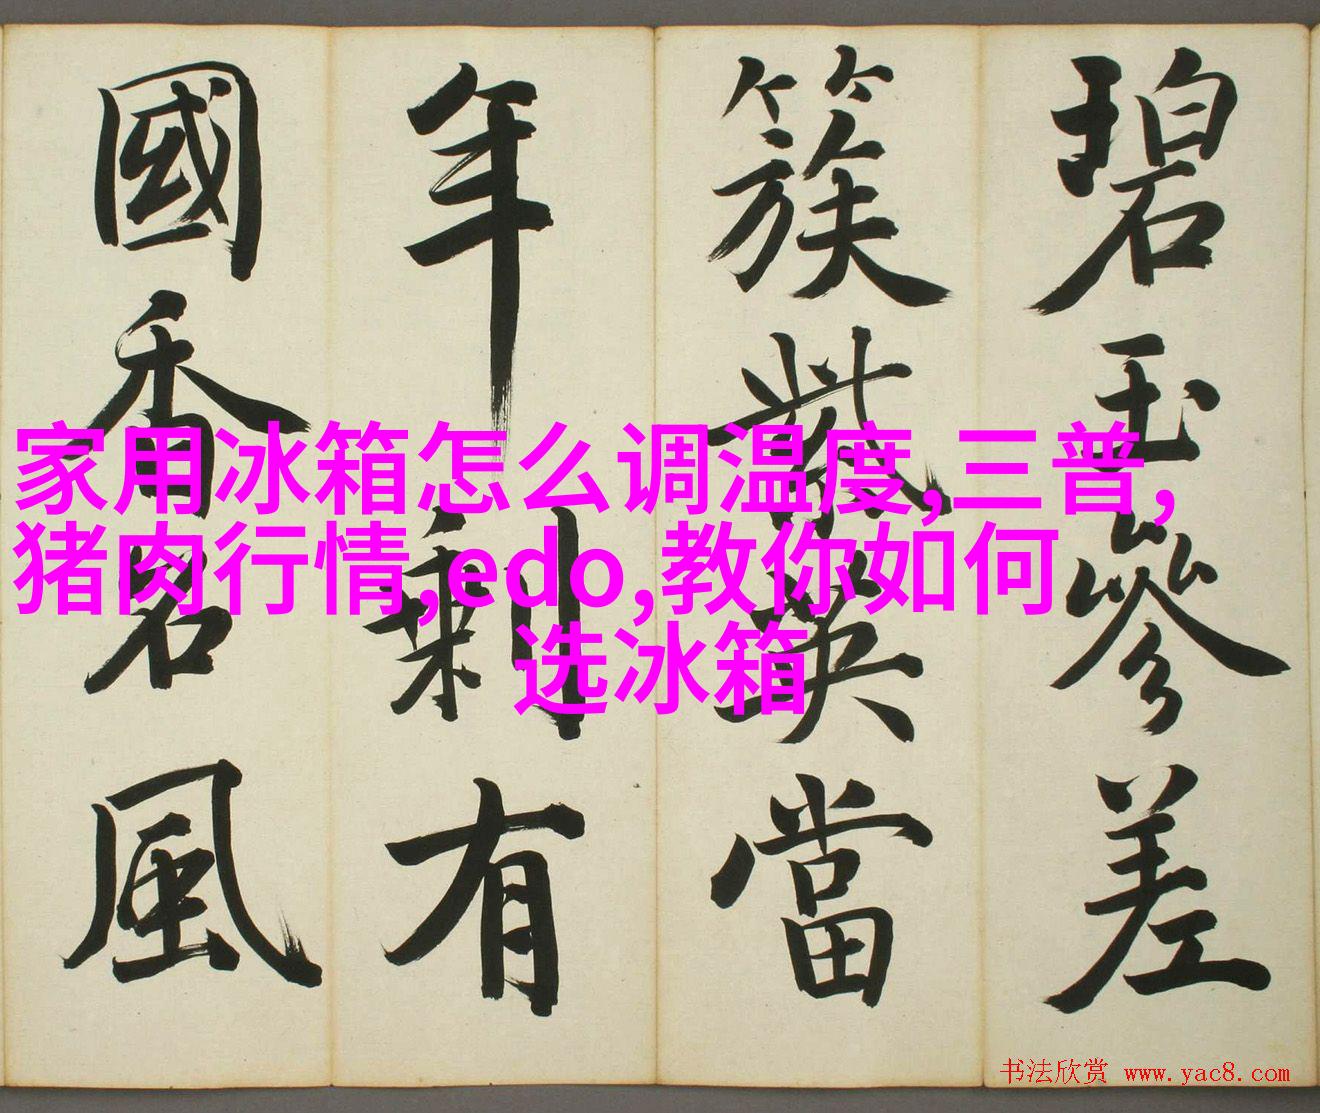 碧玉參差
簇紫英當
年剩有
國香名風
家用冰箱怎么调温度,三普,
猪肉行情,edo,教你如何
选冰箱
书法欣赏 www.yac8.com